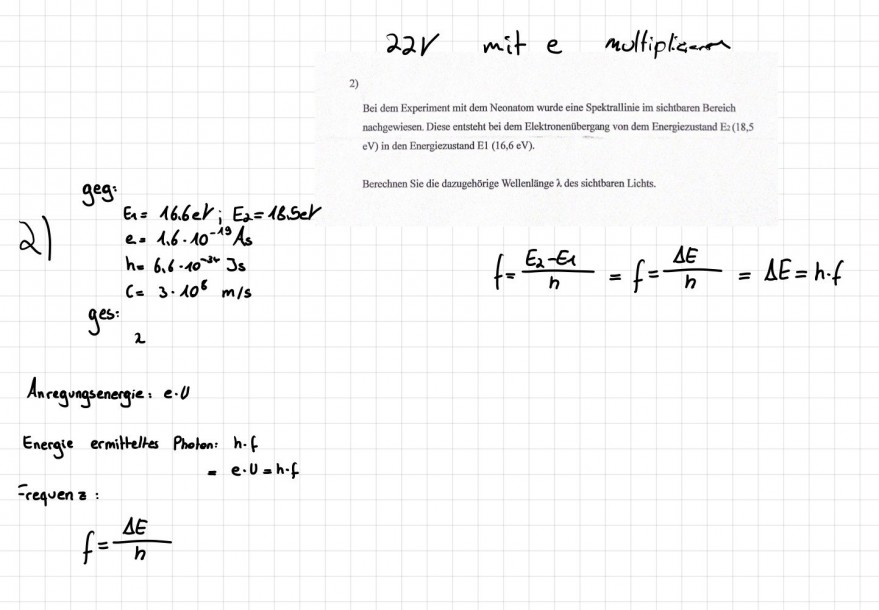 22V mit e multiplizieren
2)
Bei dem Experiment mit dem Neonatom wurde eine Spektrallinie im sichtbaren Bereich
nachgewiesen. Diese entsteht bei dem Elektronenübergang von dem Energiezustand E₂ (18,5
eV) in den Energiezustand E1 (16,6 eV).
Berechnen Sie die dazugehörige Wellenlänge λ des sichtbaren Lichts.
2)
geg:
E₁ = 16.6eV ; E₂ = 18.5eV
e = 1.6 · 10⁻¹⁹ As
h = 6,6 · 10⁻³⁴ Js
C = 3 · 10⁸ m/s
ges:
λ
f = E₂-E₁ / h = f = ΔE / h = ΔE = h·f
Anregungsenergie: e·U
Energie ermitteltes Photon: h·f
= e·U = h·f
Frequenz :
f = ΔE / h